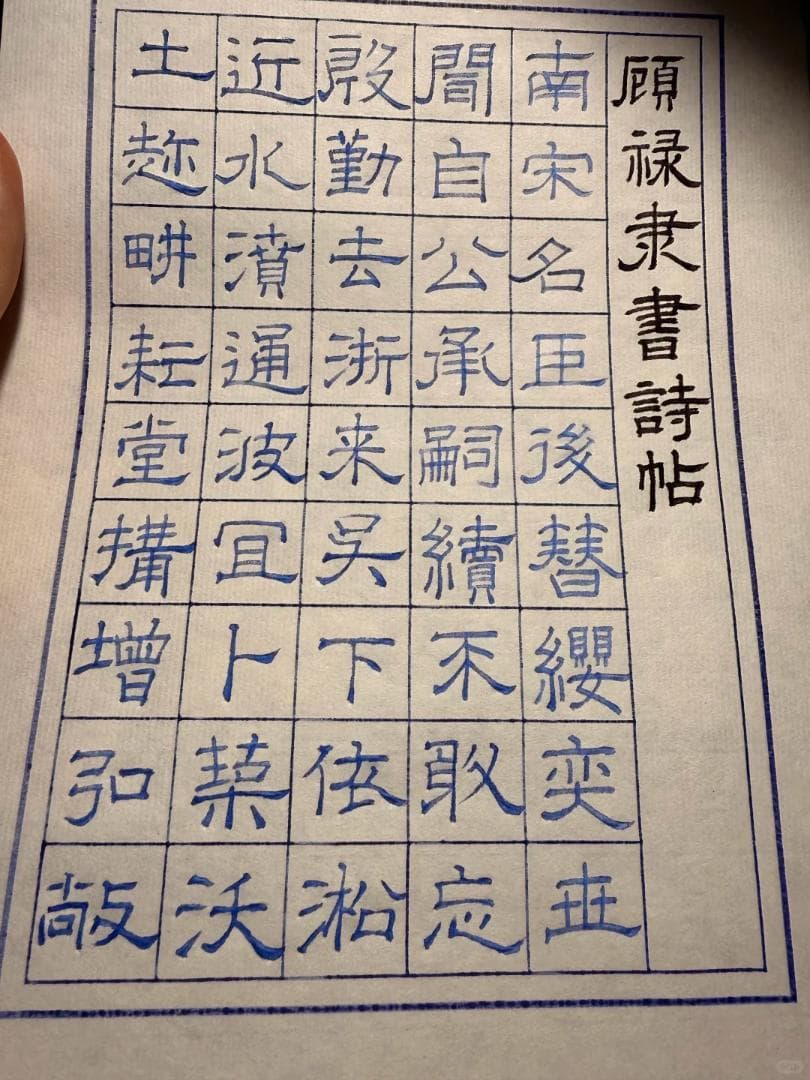 頋禄隶書詩帖
南宋名臣後簪纓奕世
間自公承嗣續不敢忘
殷勤去浙来吴下依淞
近水濆通波宜卜築沃
土趂畊耘堂搆增弘敞